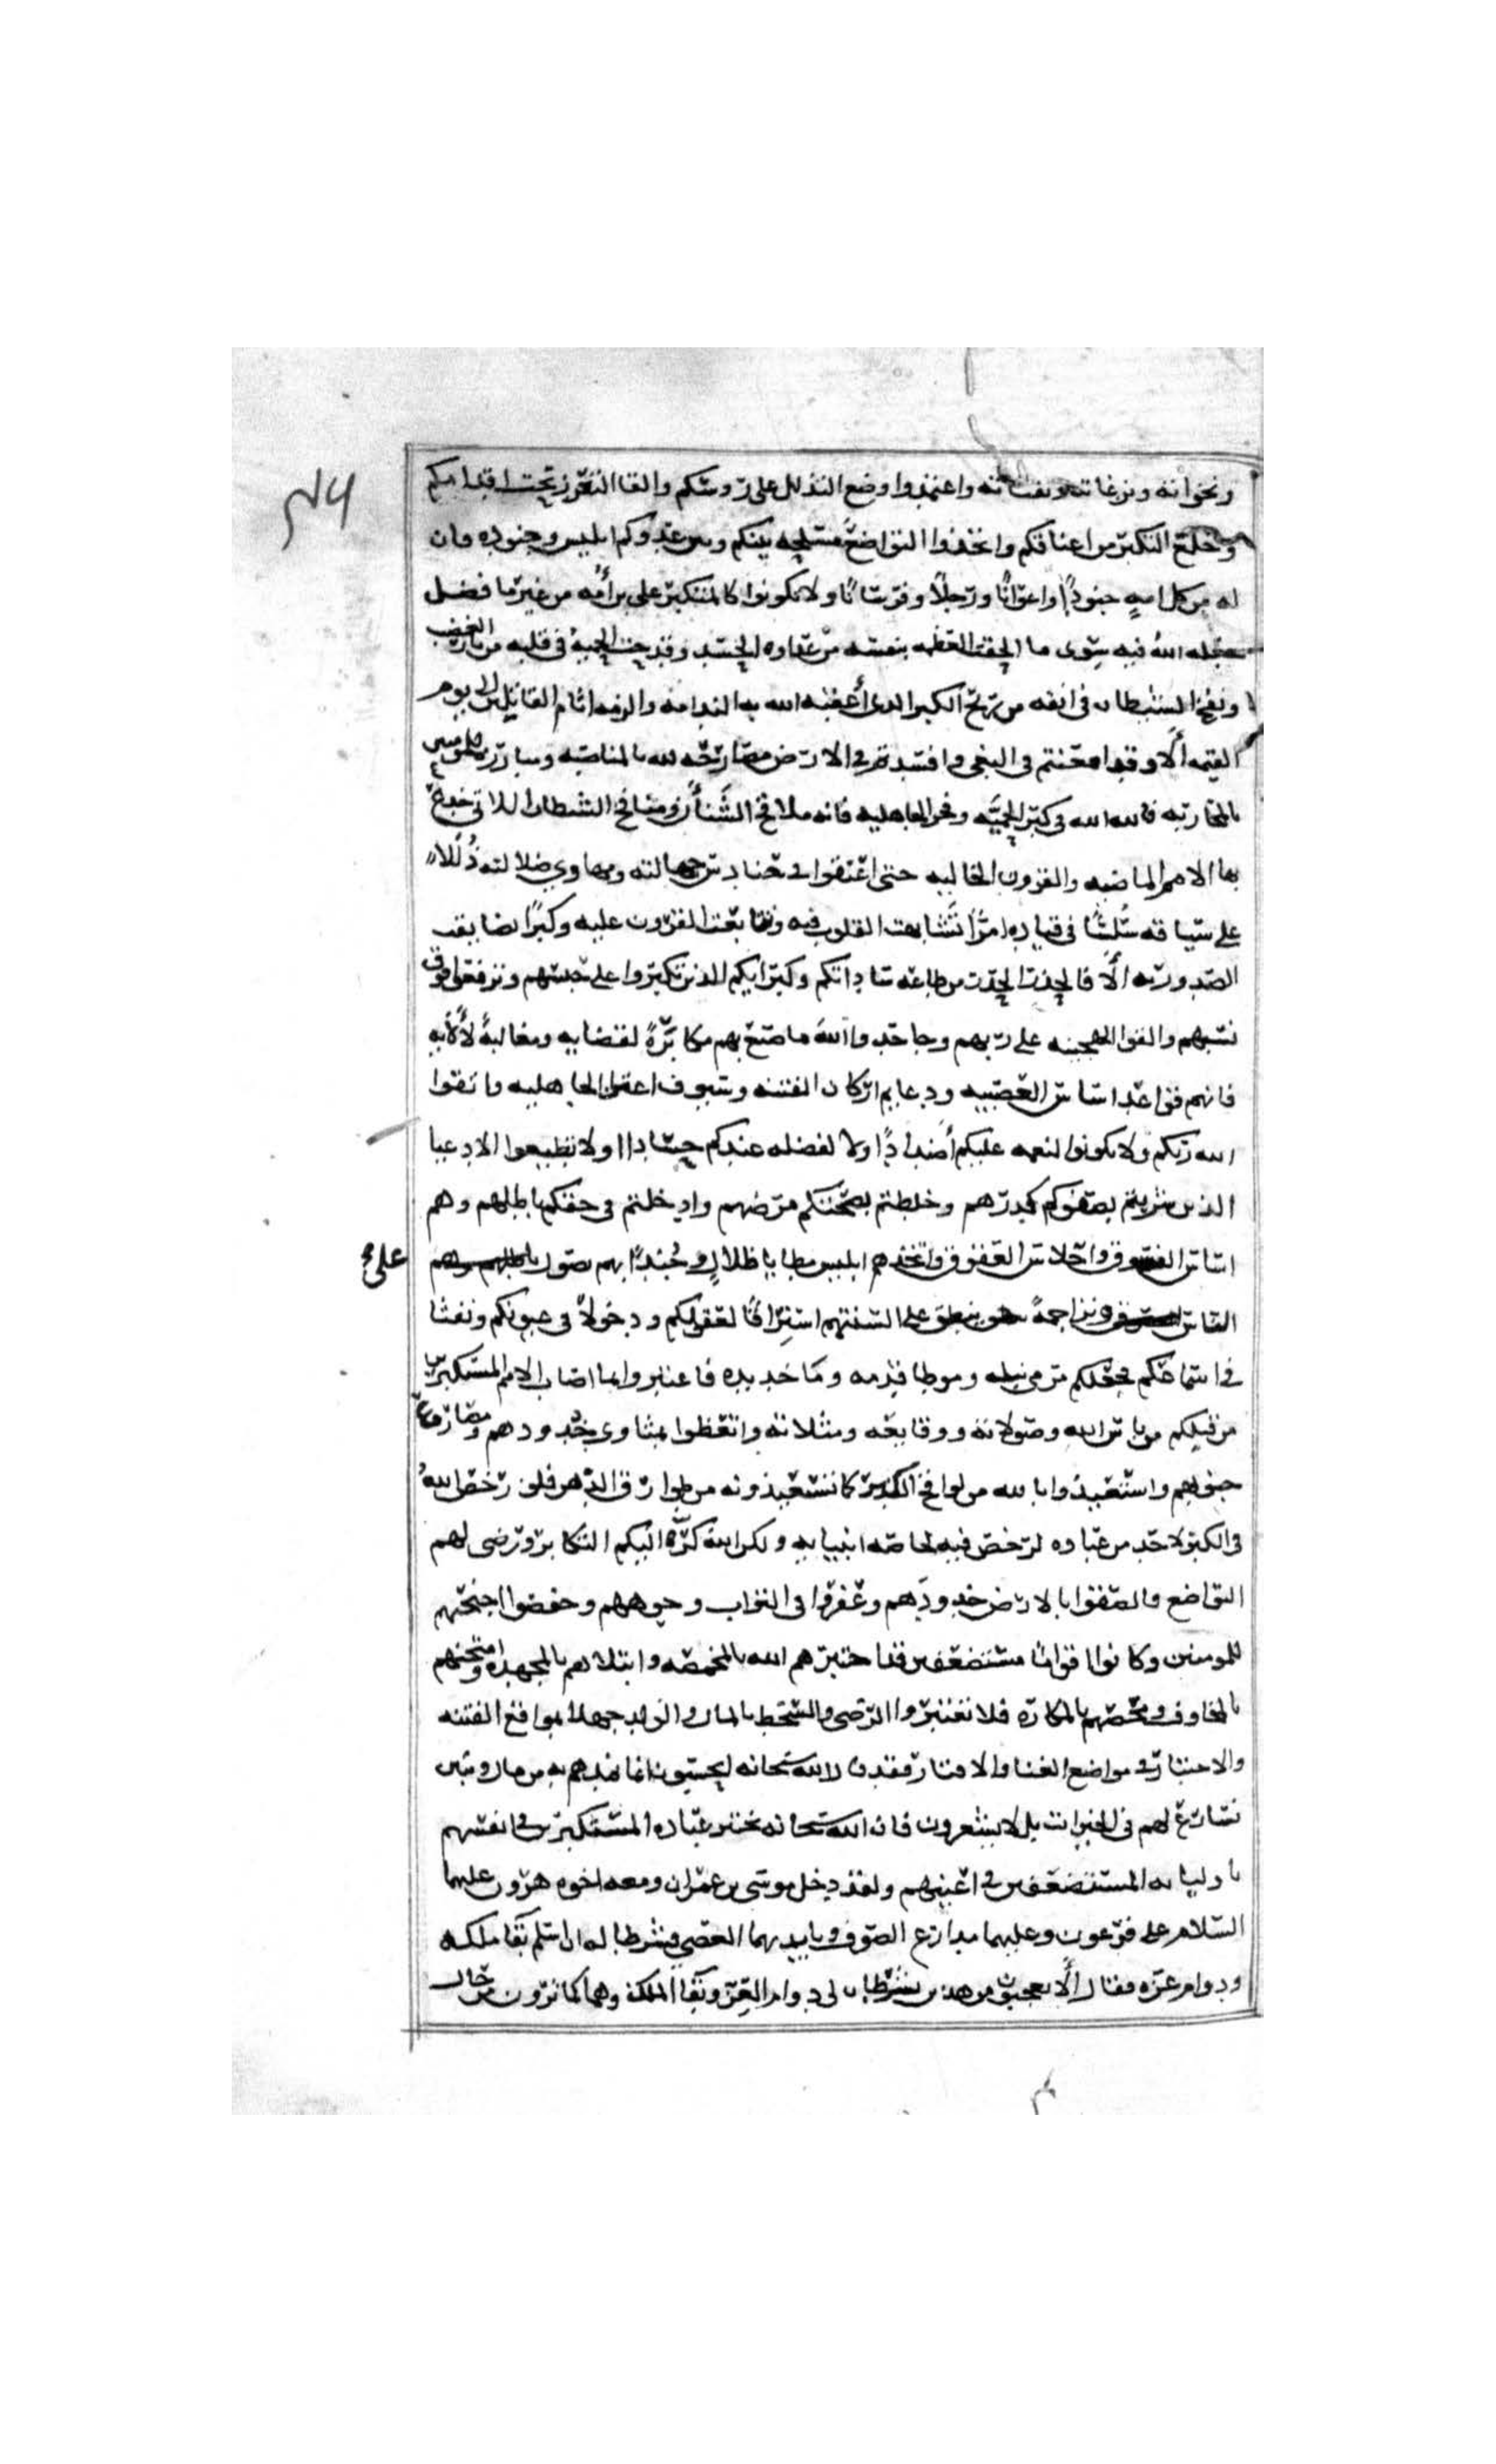 ونخواته ونزغاته ونفثاته واعتمدوا وضع التذلل على رؤسكم والقا التعزز تحت اقدامكم
وخلع التكبر من اعناقكم واتخذوا التواضع مسلحه بينكم وبين عدوكم ابليس وجنوده فان
له من كل امةٍ جنودًا واعوانًا ورجلاً وفرسانًا ولا تكونوا كالمتكبر على بن أمّه من غير ما فضل
جعله الله فيه سوى ما الحقت العظمه بنفسه من عداوه الحسد وقدحت الحمية فى قلبه من نار الغضب
ونفخ الشيطان فى انفه من ريح الكبر الدى أعقبه الله به الندامه والزمه اثام القاتلين الى يوم
القيمه ألا وقد امعنتم فى البغى وافسدتم فى الارض مصارحه لله بالمناصبه ومبارزه للمومنين
بالمحاربه فالله الله فى كبر الحميّه وفخر الجاهليه فانه ملاقح الشَنأن ومنافخ الشيطان اللاتى خدع
بها الامم الماضيه والقرون الخاليه حتى اعنقوا فى حنادس جهالته ومهاوي ضلالته ذُلُلاً
على سياقه سُلسًا فى قياده امرًا تشابهت القلوب فيه وتتابعت القرون عليه وكبرًا تضايقت
الصدور به ألا فالحذر الحذر من طاعه ساداتكم وكبرايكم الذين تكبروا على حسبهم وترفعوا فوق
نسبهم والقوا الهجينه على ربهم وجاحدوا الله ما صنع بهم مكابَرةً لقضايه ومغالبةً لألايه
فانهم قواعد اساس العصبيه ودعايم اركان الفتنه وسيوف اعتزا الجاهليه فاتقوا
الله ربكم ولا تكونوا لنعمه عليكم أضدادًا ولا لفضله عندكم حسادا ولا تطيعوا الادعيا
الذين شربتم بصفوكم كدرهم وخلطتم بصحتكم مرضهم وادخلتم فى حقكم باطلهم وهم
اساس الفسوق واحلاس العقوق واتخذهم ابليس مطايا ظلالٍ وجُندًا بهم يصول
على
الناس وتراجمةً ينطق على السنتهم استراقًا لعقولكم ودخولاً فى عيونكم ونفثا
فى اسماعكم فجعلكم مرمى نبله وموطا قدمه وماخذ يده فاعتبروا بما اصاب الامم المستكبرين
من قبلكم من باس الله وصولاته ووقايعه ومثلاته واتعظوا بمثاوى خدودهم ومصارع
جنوبهم واستعيذوا بالله من لواقح الكبر كما تستعيذونه من طوارق الدهر فلو رخص الله
فى الكبر لاحد من عباده لرخص فيه لخاصه انبيايه ولكن الله كرّه اليكم التكابر ورضى لهم
التواضع فالصقوا بالارض خدودَهم وعفروا فى التراب وجوههم وخفضوا اجنحتهم
للمومنين وكانوا اقوامًا مستضعفين قد اختبرهم الله بالمخمصه وابتلاهم بالمجهده وامتحنهم
بالمخاوف ومحصهم بالمكاره فلا تعتبروا الرضى والسخط بالمال والولد جهلاً بمواقع الفتنه
والاختبار فى مواضع الغنا والاقتار فقد قال الله سبحانه ايحسبون انما نمدهم به من مال وبنين
نسارع لهم فى الخيرات بل لا يشعرون فان الله سبحانه يختبر عباده المستكبرين فى انفسهم
باوليايه المستضعفين فى اعينهم ولقد دخل موسى بن عمران ومعه اخوه هرون عليهما
السلام على فرعون وعليهما مدارع الصوف وبايديهما العصى فشرطا له ان اسلم بقا ملكه
ودوام عزه فقال ألا تعجبون من هذين يشرطان لى دوام العز وبقا الملك وهما كما ترون من حال